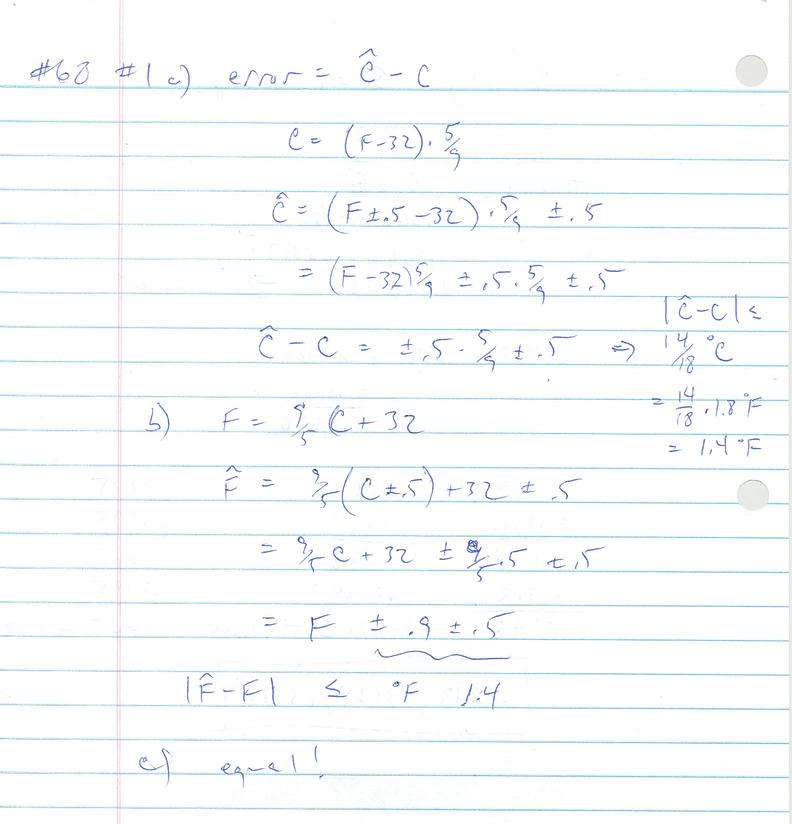 #68 #1 a) error = Ĉ - C
C = (F-32)·5/9
Ĉ = (F±.5-32)·5/9 ±.5
= (F-32)5/9 ±.5·5/9 ±.5
Ĉ - C = ±.5·5/9 ±.5 ⇒ |Ĉ-C| ≤ 14/18 °C
= 14/18·1.8°F
= 1.4°F
b) F = 9/5 C + 32
F̂ = 9/5(C±.5)+32 ±.5
= 9/5 C + 32 ± 9/5·.5 ±.5
= F ± .9 ±.5
|F̂-F| ≤ °F 1.4
c) equal!